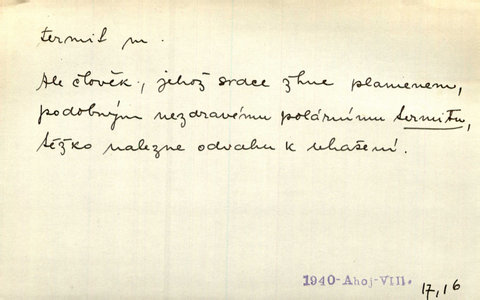 termit m.
Ale člověk, jehož srdce žhne plamenem,
podobným nezdravému polárnímu termitu,
těžko nalezne odvahu k uhašení.
1940-Ahoj-VIII.
17,16